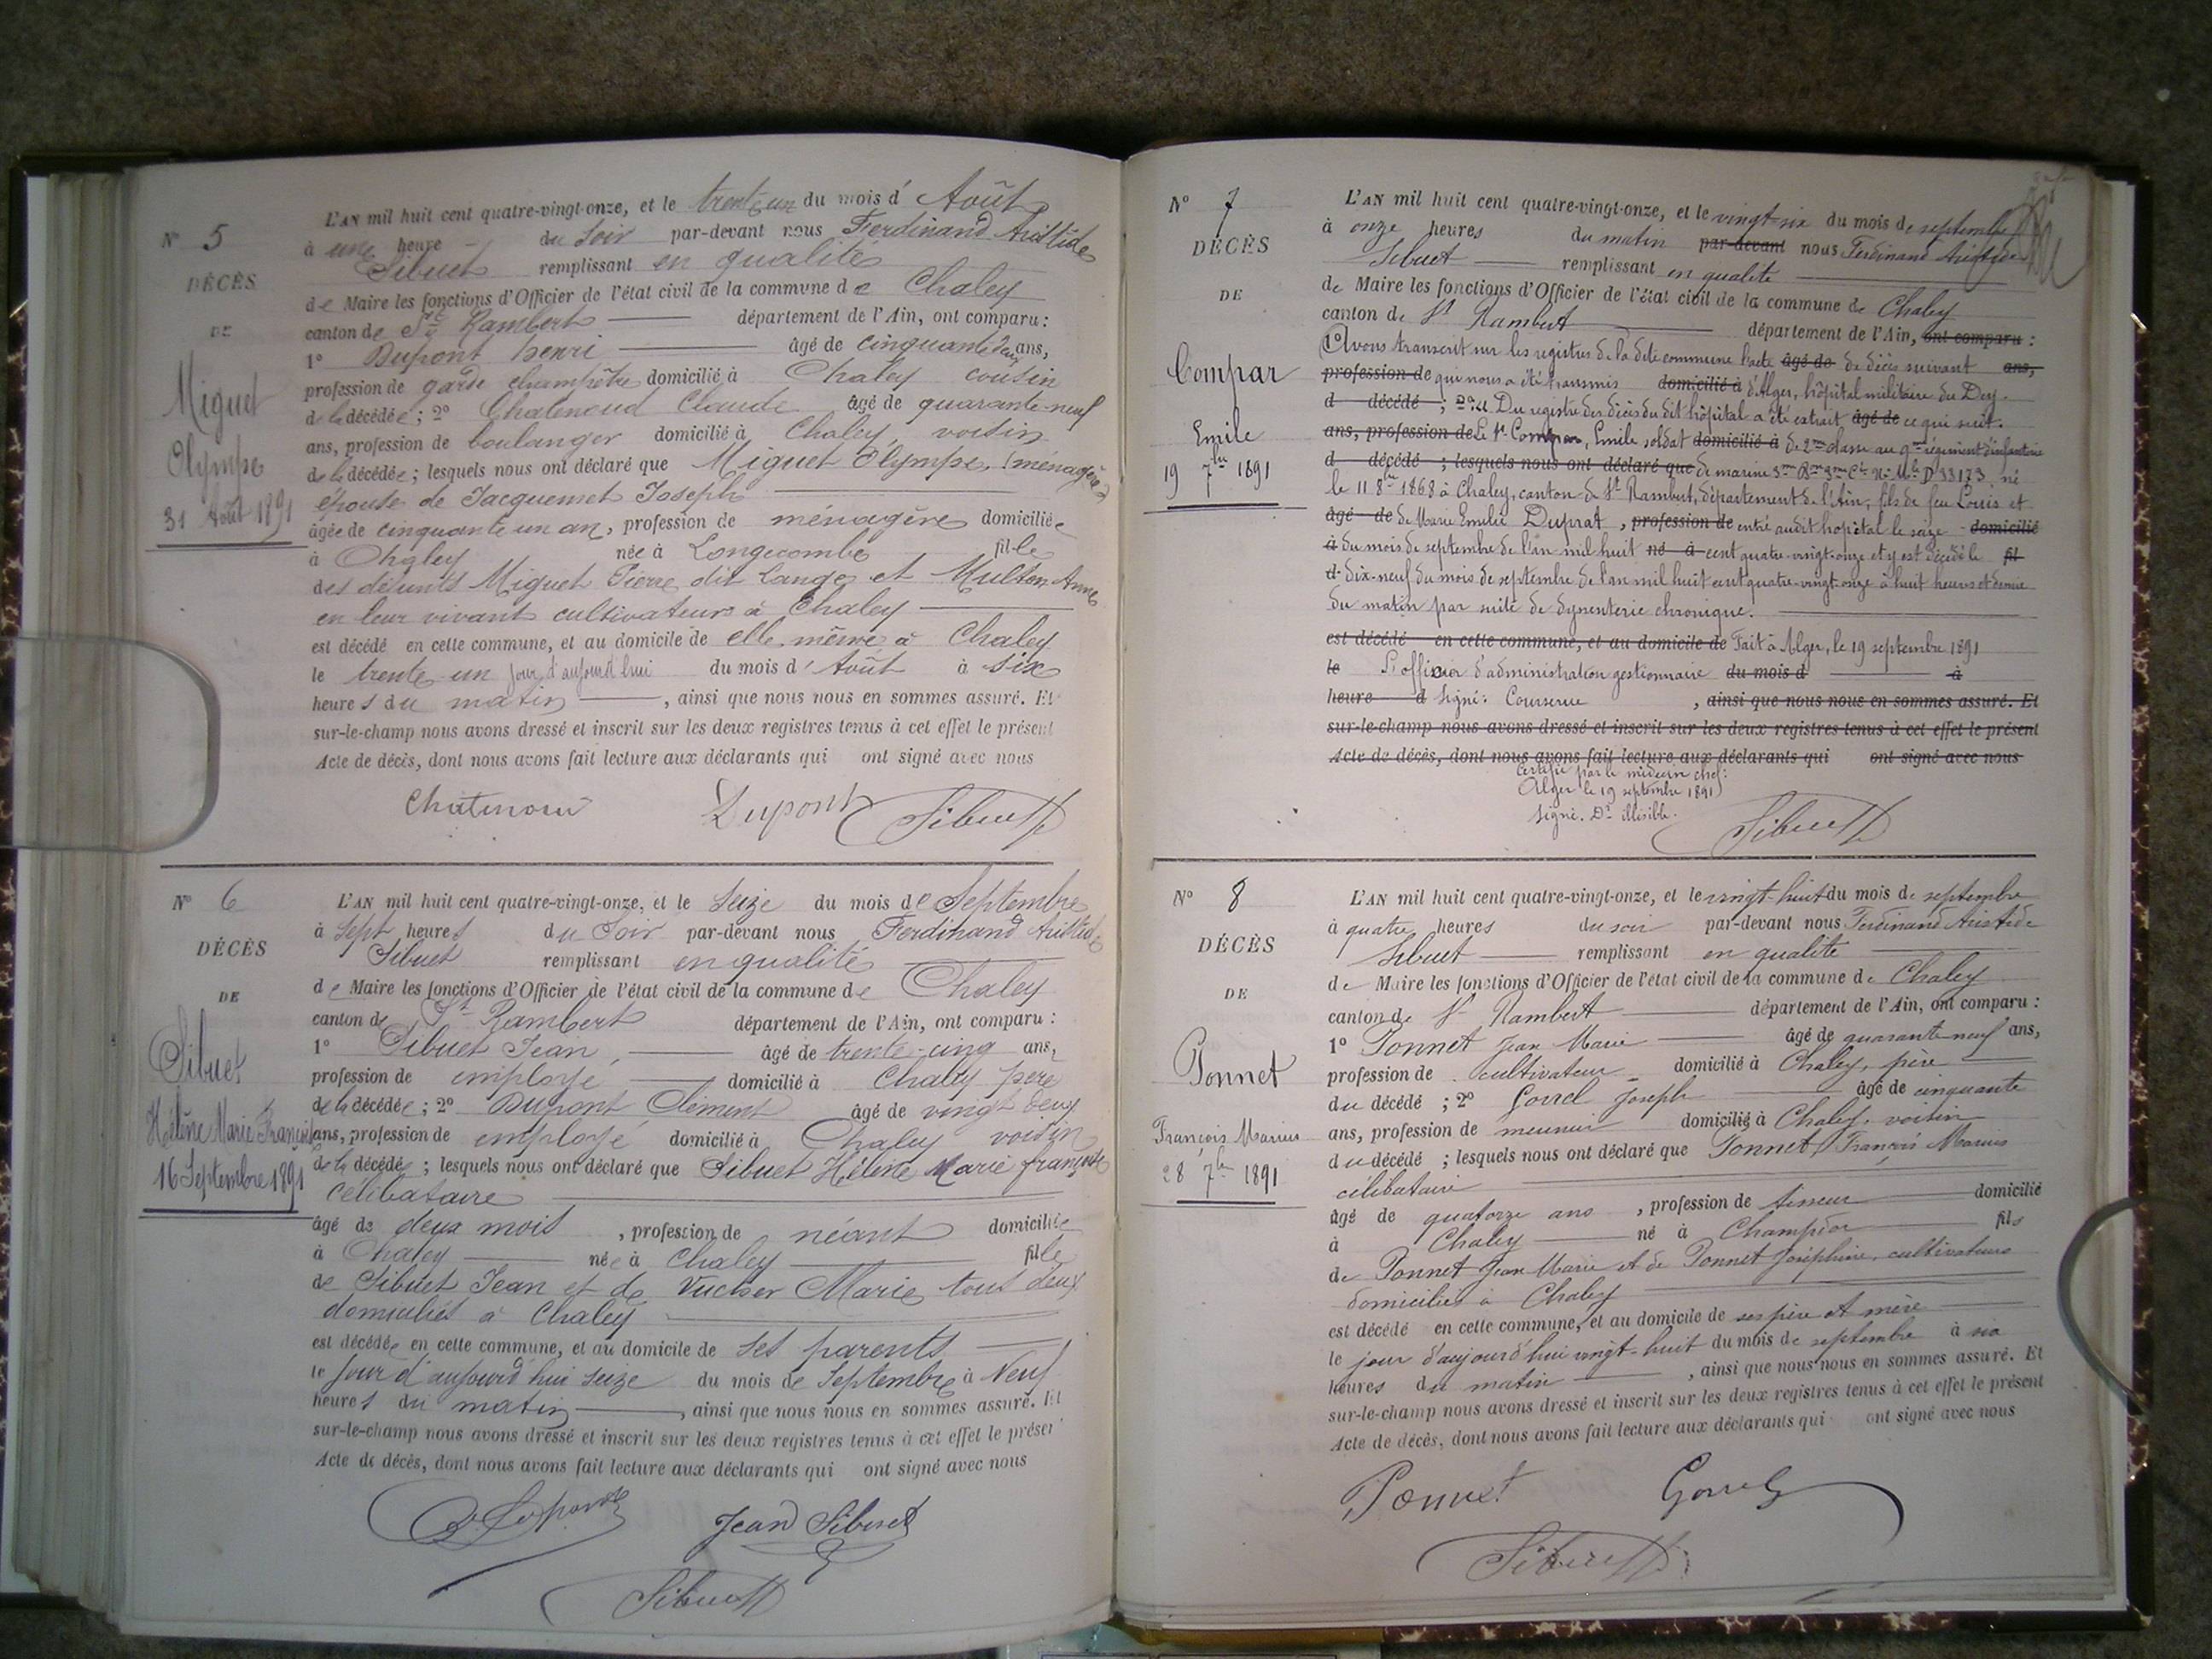 N° 5
DÉCÈS
DE
Miguet
Olympe
31 Août 1891
L'AN mil huit cent quatre-vingt-onze, et le trente un du mois d' Août
à une heure du Soir par-devant nous Ferdinand Aristide
Sibuet remplissant en qualité
de Maire les fonctions d'Officier de l'état civil de la commune de Chaley
canton de St Rambert département de l'Ain, ont comparu :
1° Dupont henri âgé de cinquante deux ans,
profession de garde champêtre domicilié à Chaley cousin
de la décédée ; 2° Chatenoud Claude âgé de quarante-neuf
ans, profession de boulanger domicilié à Chaley, voisin
de la décédée ; lesquels nous ont déclaré que Miguet Olympe, (ménagère)
épouse de Jacquemet Joseph
âgée de cinquante un an, profession de ménagère domiciliée
à Chaley née à Longecombe fille
des défunts Miguet Pierre dit Lange et Multon Anne
en leur vivant cultivateurs à Chaley
est décédé en cette commune, et au domicile de elle même à Chaley
le trente-un jour d'aujourd'hui du mois d' Août à six
heures du matin , ainsi que nous nous en sommes assuré. Et
sur-le-champ nous avons dressé et inscrit sur les deux registres tenus à cet effet le présent
Acte de décès, dont nous avons fait lecture aux déclarants qui ont signé avec nous
Chatenoud Dupont Sibuet
N° 6
DÉCÈS
DE
Sibuet
Hélène Marie Françoise
16 Septembre 1891
L'AN mil huit cent quatre-vingt-onze, et le Seize du mois de Septembre
à Sept heures du Soir par-devant nous Ferdinand Aristide
Sibuet remplissant en qualité
de Maire les fonctions d'Officier de l'état civil de la commune de Chaley
canton de St Rambert département de l'Ain, ont comparu :
1° Sibuet Jean, âgé de trente-cinq ans,
profession de employé domicilié à Chaley père
de la décédée ; 2° Dupont Clément âgé de vingt deux
ans, profession de employé domicilié à Chaley voisin
de la décédé ; lesquels nous ont déclaré que Sibuet Hélène Marie françoise
célibataire
âgé de deux mois , profession de néant domiciliée
à Chaley née à Chaley fille
de Sibuet Jean et de Vucher Marie tous deux
domiciliés à Chaley
est décédée en cette commune, et au domicile de ses parents
le jour d'aujourd'hui seize du mois de Septembre à Neuf
heures du matin , ainsi que nous nous en sommes assuré. Et
sur-le-champ nous avons dressé et inscrit sur les deux registres tenus à cet effet le présent
Acte de décès, dont nous avons fait lecture aux déclarants qui ont signé avec nous
Jean Sibuet
Sibuet
N° 7
DÉCÈS
DE
Compar
Emile
19 7bre 1891
L'AN mil huit cent quatre-vingt-onze, et le vingt-six du mois de septembre
à onze heures du matin par-devant nous Ferdinand Aristide
Sibuet remplissant en qualité
de Maire les fonctions d'Officier de l'état civil de la commune de Chaley
canton de St Rambert département de l'Ain, ont comparu :
1° Avons transcrit sur les registres de la dite commune l'acte âgé de de décès suivant ans,
profession de qui nous a été transmis domicilié à d'Alger, hôpital militaire du Dey.
d décédé ; 2° Du registre des décès du dit hôpital a été extrait âgé de ce qui suit.
ans, profession de Le Sr Compar, Emile soldat domicilié à de 2me classe au 4me régiment d'infanterie
d décédé ; lesquels nous ont déclaré que de marine 3me Bon 3me Cie No Mle D 33173, né
le 11 8bre 1868 à Chaley, canton de St Rambert, département de l'Ain, fils de feu Louis et
âgé de de Marie Emilie Duprat, profession de entré audit hôpital le seize domicilié
à du mois de septembre de l'an mil huit né à cent quatre-vingt-onze et y est décédé le fil
d dix-neuf du mois de septembre de l'an mil huit cent quatre-vingt-onze à huit heures et demie
du matin par suite de dysenterie chronique.
est décédé en cette commune, et au domicile de Fait à Alger, le 19 septembre 1891
le L'officier d'administration gestionnaire du mois d à
heure d Signé: , ainsi que nous nous en sommes assuré. Et
sur-le-champ nous avons dressé et inscrit sur les deux registres tenus à cet effet le présent
Acte de décès, dont nous avons fait lecture aux déclarants qui ont signé avec nous
Certifié par le médecin chef:
Alger le 19 septembre 1891
Signé. Dr illisible.
Sibuet
N° 8
DÉCÈS
DE
Ponnet
François Marius
28 7bre 1891
L'AN mil huit cent quatre-vingt-onze, et le vingt-huit du mois de septembre
à quatre heures du soir par-devant nous Ferdinand Aristide
Sibuet remplissant en qualité
de Maire les fonctions d'Officier de l'état civil de la commune de Chaley
canton de St Rambert département de l'Ain, ont comparu :
1° Ponnet Jean Marie âgé de quarante neuf ans,
profession de cultivateur domicilié à Chaley, père
du décédé ; 2° Gorrel Joseph âgé de cinquante
ans, profession de meunier domicilié à Chaley, voisin
du décédé ; lesquels nous ont déclaré que Ponnet, François Marius
célibataire
âgé de quatorze ans , profession de tisseur domicilié
à Chaley né à Champdor fils
de Ponnet Jean Marie et de Ponnet Joséphine, cultivateurs
domiciliés à Chaley
est décédé en cette commune, et au domicile de ses père et mère
le jour d'aujourd'hui vingt-huit du mois de septembre à six
heures du matin , ainsi que nous nous en sommes assuré. Et
sur-le-champ nous avons dressé et inscrit sur les deux registres tenus à cet effet le présent
Acte de décès, dont nous avons fait lecture aux déclarants qui ont signé avec nous
Ponnet Gorrel
Sibuet